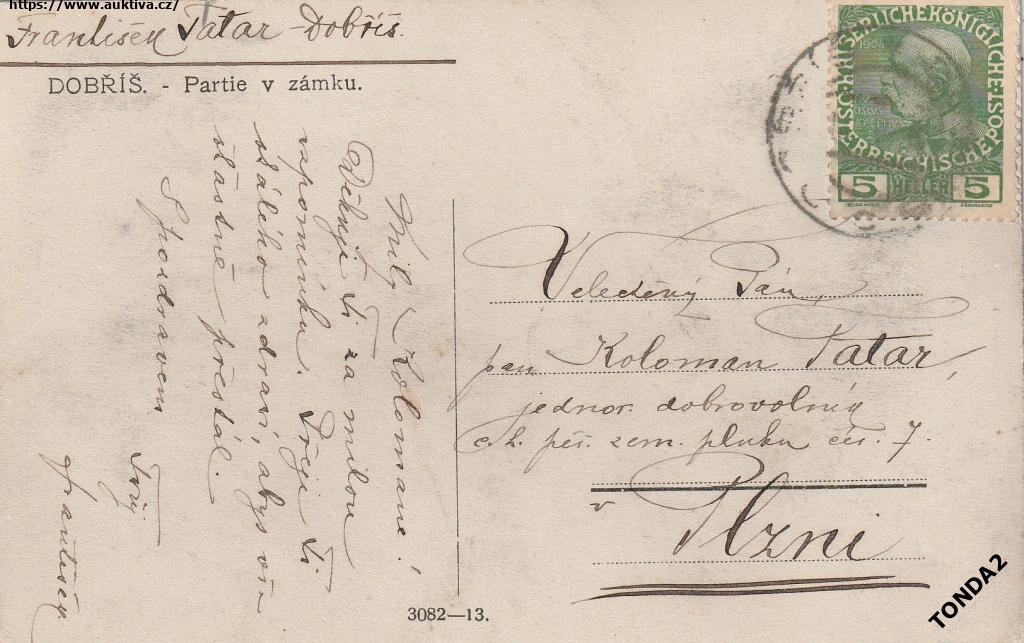 https://www.auktiva.cz/
František Tatar Dobříš.
DOBŘÍŠ. - Partie v zámku.
Milý Kolomane!
Děkuji Ti za milou
vzpomínku. Přeji Ti
stálého zdraví, abys vše
šťastně přestál.
S pozdravem
Tvůj
František.
Veletěný Pán,
pan Koloman Tatar,
jednor. dobrovolník
c. k. pěš. zem. pluku čís. 7.
v
Plzni
3082—13.
KAISERLICHE KÖNIGLICHE
ÖSTERREICHISCHE POST
1908
5 HELLER 5
TONDA2